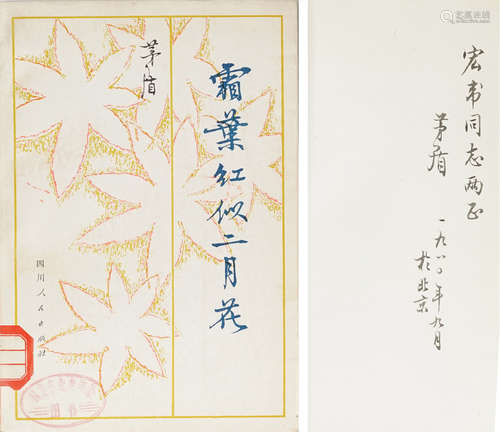 霜葉红似二月花
茅盾
四川人民出版社
图书
宏韦同志两正
茅盾
一九八〇年九月
於北京